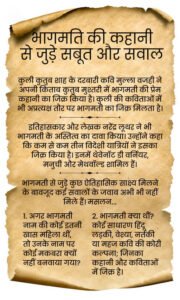 भागमति की कहानी
से जुड़े सबूत और सवाल
कुली कुतुब शाह के दरबारी कवि मुल्ला वजही ने
अपनी किताब कुतुब मुश्तरी में भागमती की प्रेम
कहानी का जिक्र किया है। कुली की कविताओं में
भी अप्रत्यक्ष तौर पर भागमती का जिक्र मिलता है।
इतिहासकार और लेखक नरेंद्र लूथर ने भी
भागमती के अस्तित्व का दावा किया। उन्होंने कहा
कि कम से कम तीन विदेशी यात्रियों ने इसका
जिक्र किया है। इनमें थेवेनॉट डी वर्नियर,
मनुची और मेथवॉल्ड शामिल हैं।
भागमती से जुड़े कुछ ऐतिहासिक साक्ष्य मिलने
के बावजूद कई सवालों के जवाब अभी भी नहीं
मिले हैं। मसलन...
1. अगर भागमती
नाम की कोई इतनी
खास महिला थीं,
तो उनके नाम पर
कोई मकबरा क्यों
नहीं बनवाया गया?
2. भागमती क्या थीं?
कोई साधारण हिंदू
लड़की, वेश्या, नर्तकी
या महज कवि की कोरी
कल्पना; जिनका
कहानी और कविताओं
में जिक्र है।